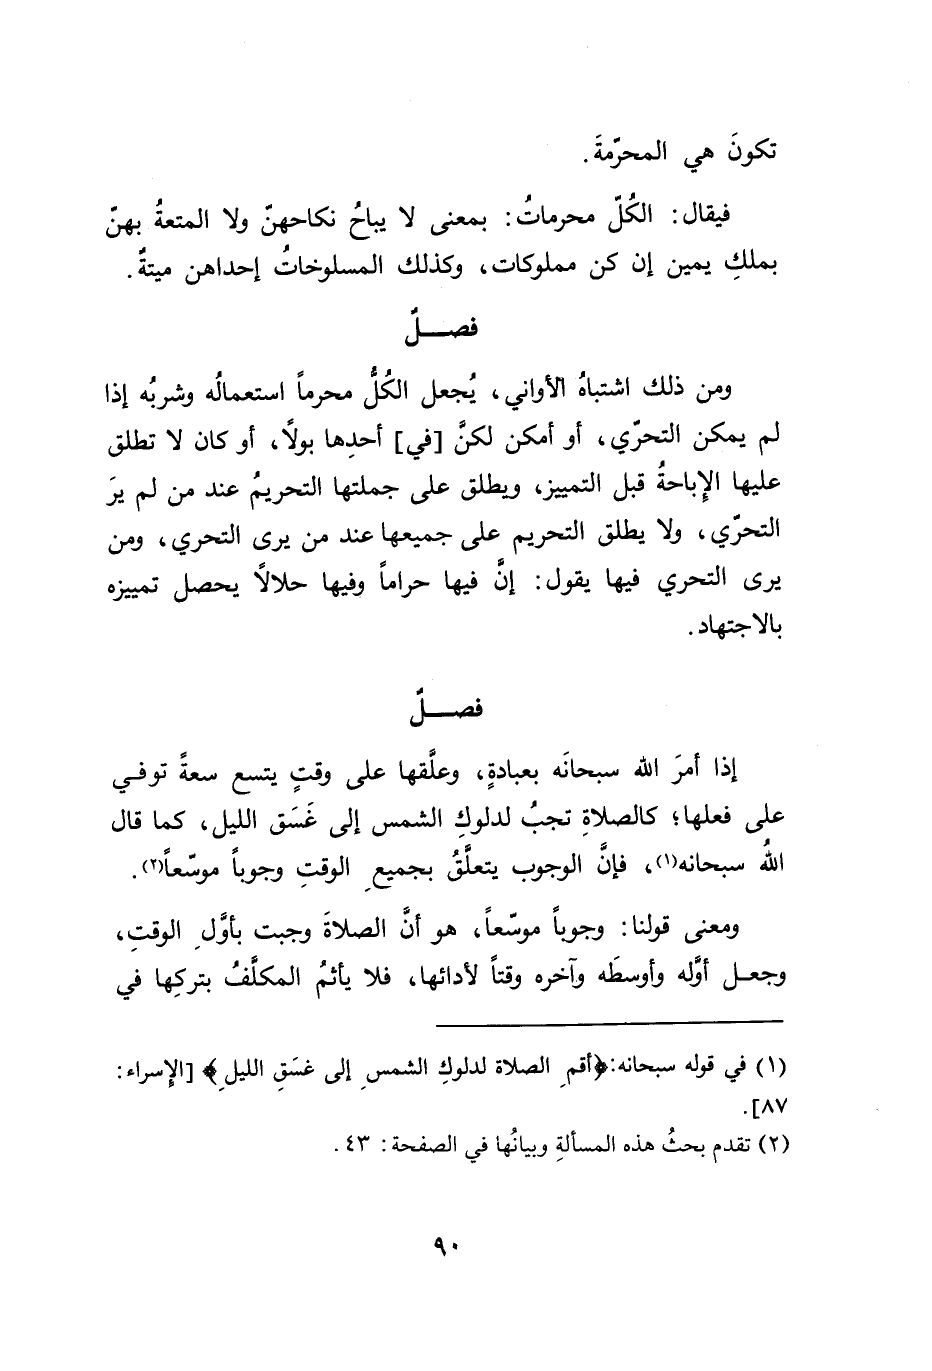 تكونَ هي المحرّمةَ.
فيقال: الكُلّ محرماتُ: بمعنى لا يباحُ نكاحهنّ ولا المتعةُ بهنّ
بملكِ يمين إن كن مملوكات، وكذلك المسلوخاتُ إحداهن ميتةٌ.
فصــلٌ
ومن ذلك اشتباهُ الأواني، يُجعل الكُلُّ محرماً استعمالُه وشربُه إذا
لم يمكن التحرّي، أو أمكن لكنَّ [في] أحدِها بولًا، أو كان لا تطلق
عليها الإباحةُ قبل التمييز، ويطلق على جملتها التحريمُ عند من لم يرَ
التحرّي، ولا يطلق التحريم على جميعها عند من يرى التحري، ومن
يرى التحري فيها يقول: إنَّ فيها حراماً وفيها حلالًا يحصل تمييزه
بالاجتهاد.
فصــلٌ
إذا أمرَ الله سبحانَه بعبادةٍ، وعلَّقها على وقتٍ يتسع سعةً توفي
على فعلها؛ كالصلاةِ تجبُ لدلوكِ الشمس إلى غَسَق الليل، كما قال
اللهُ سبحانه(١)، فإنَّ الوجوب يتعلَّقُ بجميعِ الوقتِ وجوباً موسّعاً(٢).
ومعنى قولنا: وجوباً موسّعاً، هو أنَّ الصلاةَ وجبت بأوَّلِ الوقتِ،
وجعل أوَّله وأوسطَه وآخره وقتاً لأدائها، فلا يأثمُ المكلَّفُ بتركِها في
(١) في قوله سبحانه: ﴿أقمِ الصلاة لدلوكِ الشمسِ إلى غسَقِ الليلِ﴾ [الإسراء:
٨٧].
(٢) تقدم بحثُ هذه المسألةِ وبيانُها في الصفحة: ٤٣.
٩٠